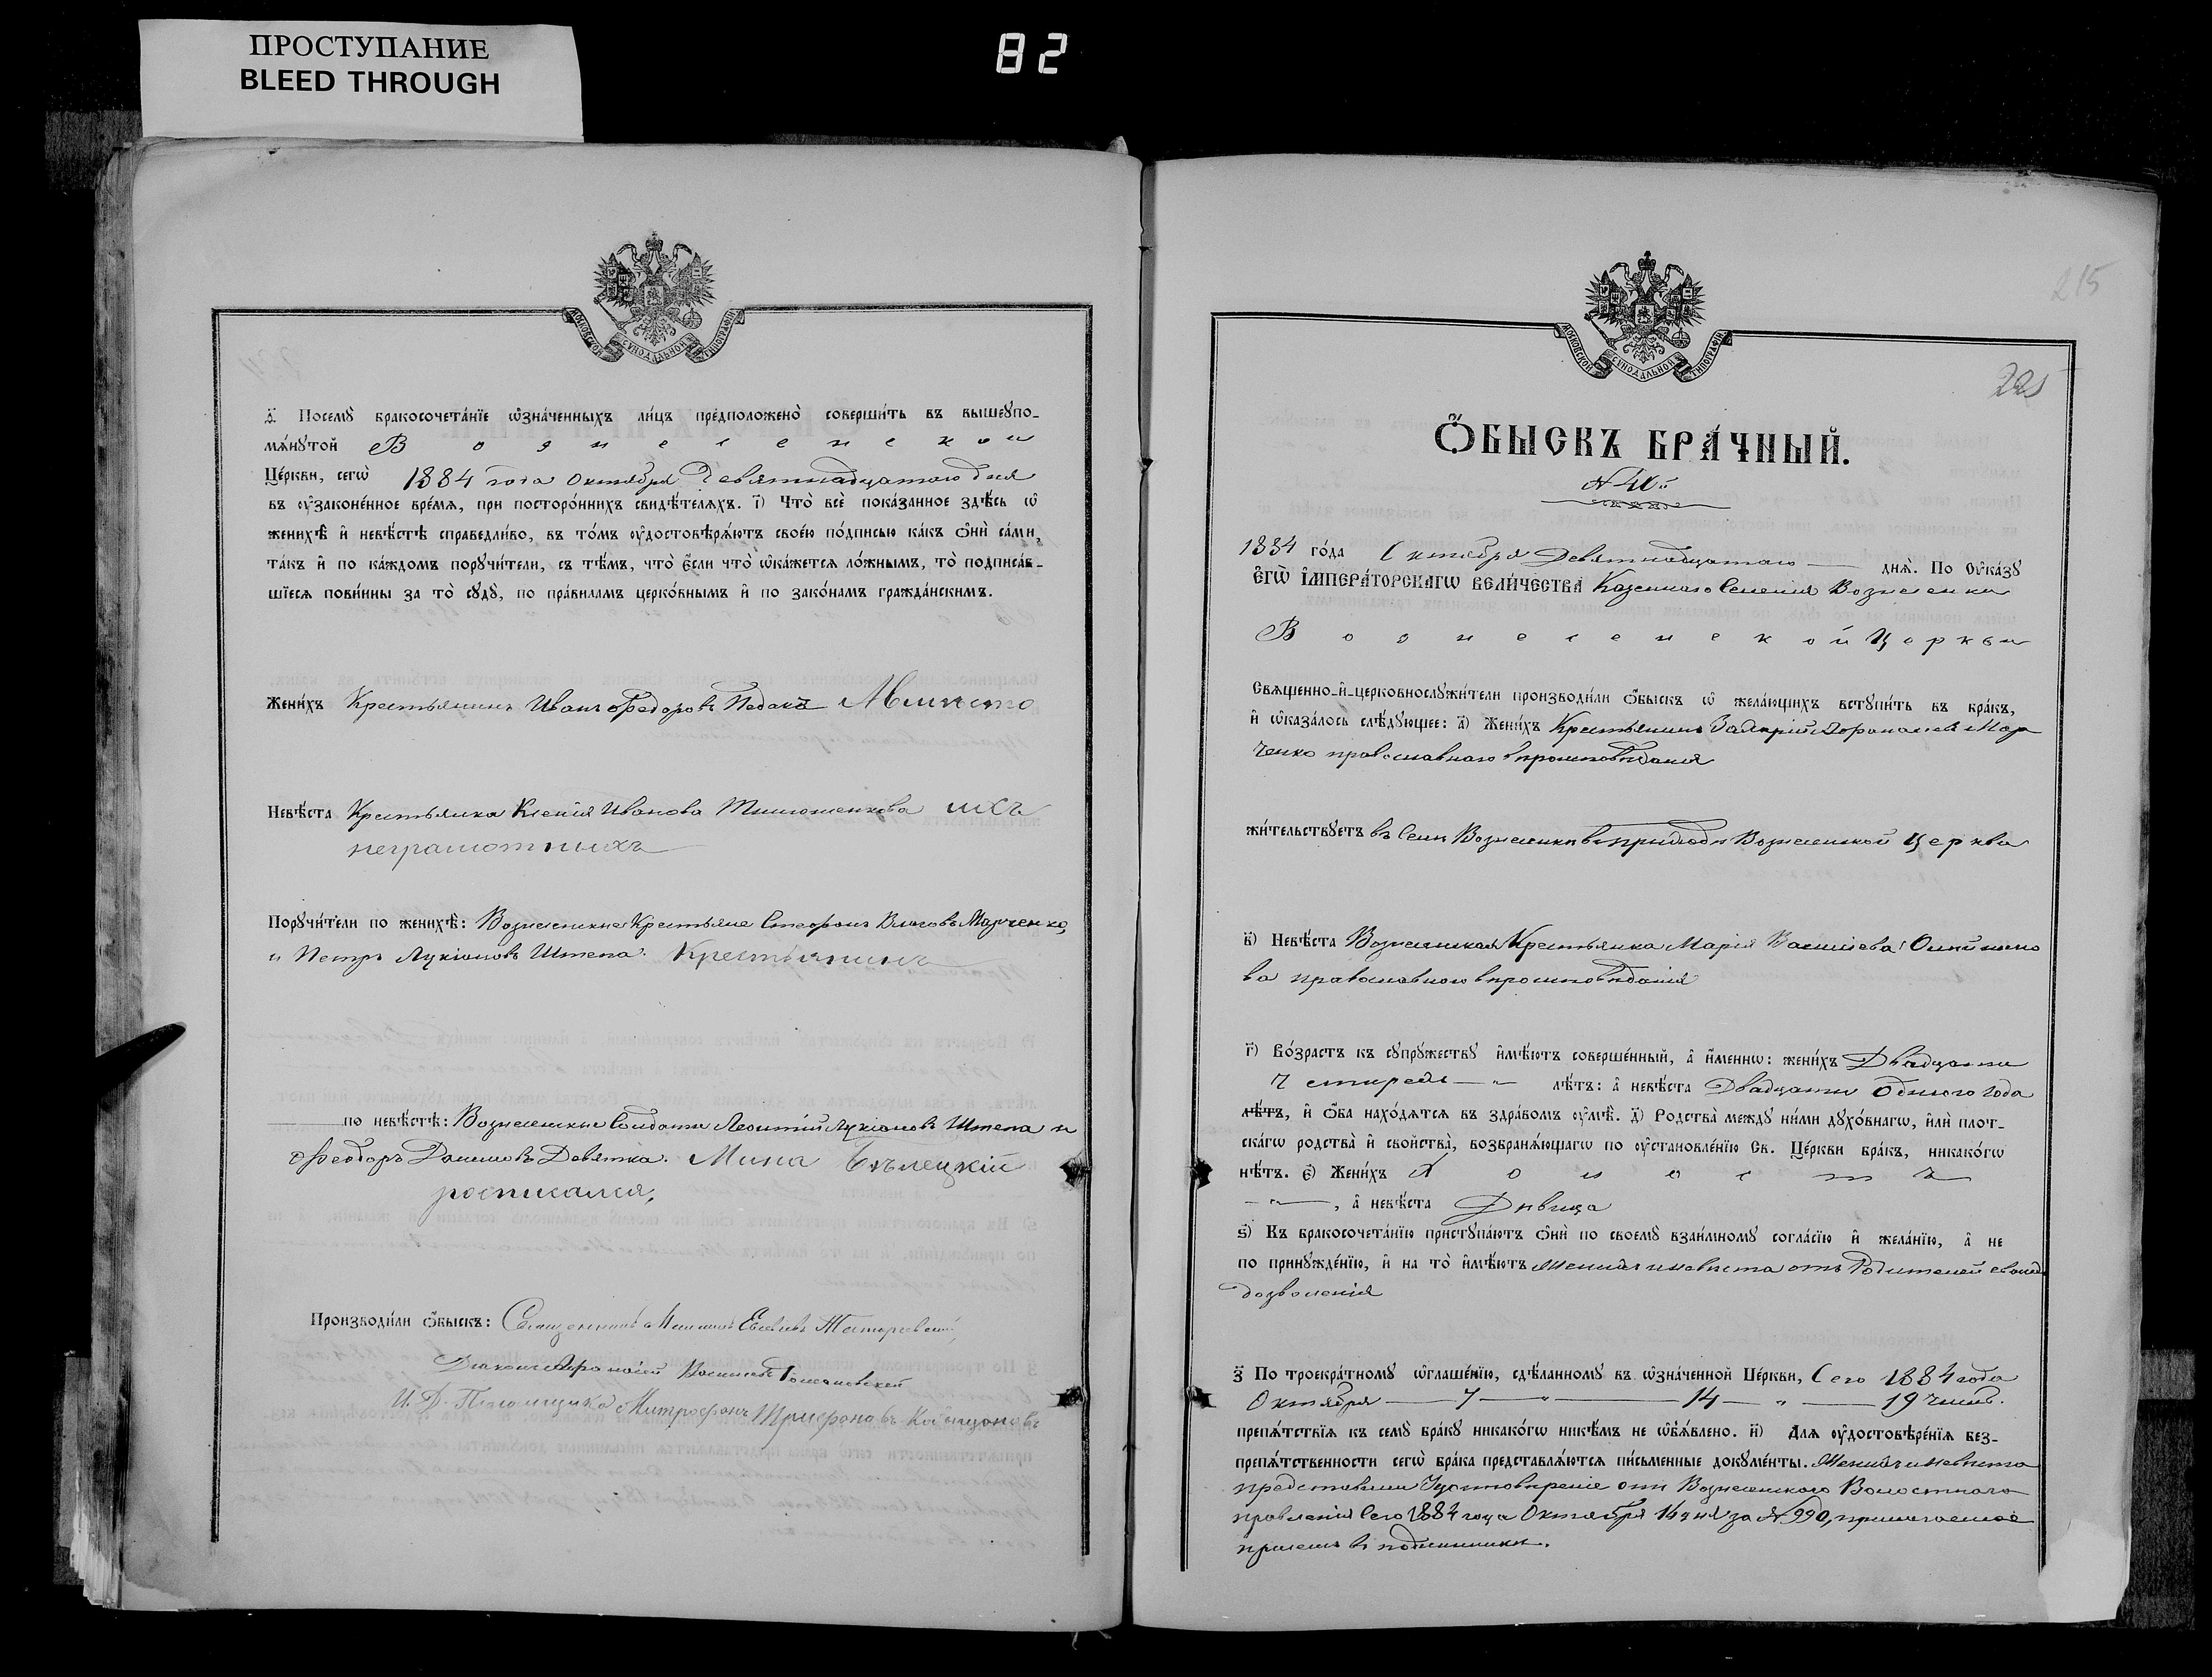 ПРОСТУПАНИЕ
BLEED THROUGH
82
МОСКОВСКОЙ СѴНОДАЛЬНОЙ ТИПОГРАФІИ
ѳ҃. Посемꙋ бракосочета́нїе ѡ҆зна́ченныхъ ли́цъ предположено̀ соверши́ть въ вышеꙋпо-
мѧ́нꙋтой Вознесенской
Це́ркви, сегѡ̀ 1884 года Октября Девятнадцатаго дня
въ ᲂу҆зако́ненное вре́мѧ, при посторо́ннихъ свидѣ́телѧхъ. і҃) Что̀ всѐ пока́занное здѣ́сь ѡ҆
женихѣ̀ и҆ невѣ́стѣ справедли́во, въ то́мъ ᲂу҆достовѣрѧ́ютъ свое́ю по́дписью ка́къ ѻ҆нѝ са́ми,
та́къ и҆ по ка́ждомъ порꙋчи́тели, съ тѣ́мъ, что̀ є҆́сли что̀ ѡ҆ка́жетсѧ ло́жнымъ, то̀ подписа́в-
шїесѧ пови́нны за то̀ сꙋдꙋ̀, по пра́виламъ церко́внымъ и҆ по зако́намъ гражда́нскимъ.
Жени́хъ Крестьянинъ Иванъ Федоровъ Педакъ
Невѣ́ста Крестьянка Ксенія Иванова Тимошенкова
неграмотныхъ
Порꙋчи́тели по женихѣ̀: Вознесенскіе Крестьяне Стефанъ Власовъ Марченко,
и Петръ Лукіановъ Штепа. Крестьянинъ
по невѣ́стѣ: Вознесенскіе Солдаты Леонтій Лукіановъ Штепа и
Феодоръ Даниловъ Девятка. Мина Бѣлецкій
росписался,
Производи́ли ѻ҆́быскъ: Священникъ
Діаконъ Афанасій Васильевъ
И. Д. Псаломщика Митрофанъ Трифоновъ
215
МОСКОВСКОЙ СѴНОДАЛЬНОЙ ТИПОГРАФІИ
225
Ѻ҆БЫСКЪ БРА́ЧНЫЙ.
1884 го́да Октября Девятнадцатаго днѧ̀. По ᲂу҆ка́зꙋ
є҆гѡ̀ і҆мпера́торскагѡ вели́чества Казеннаго Селенія Вознесенки
Вознесенской Церкви
Свѧщенно-и҆-церковнослꙋжи́тели производи́ли ѻ҆́быскъ ѡ҆ жела́ющихъ встꙋпи́ть въ бра́къ,
и҆ ѡ҆каза́лось слѣ́дꙋющее: а҃) Жени́хъ Крестьянинъ Валерій Мар
ченко православнаго вѣроисповѣданія
жи́тельствꙋетъ въ Селѣ Вознесенки въ приходѣ Вознесенской Церкви
в҃) Невѣ́ста Вознесенская Крестьянка Марія Васильева
ва православнаго вѣроисповѣданія
г҃) Во́зрастъ къ сꙋпрꙋ́жествꙋ и҆мѣ́ютъ соверше́нный, а҆ и҆́меннѡ: жени́хъ Двадцати
четырехъ лѣ́тъ: а҆ невѣ́ста Двадцати одного года
лѣ́тъ, и҆ ѻ҆́ба нахо́дѧтсѧ въ здра́вомъ ᲂу҆мѣ̀. д҃) Родства̀ междꙋ ни́ми дꙋхо́внагѡ, и҆лѝ плот-
ска́гѡ родства̀ и҆ сво́йства̀, возбранѧ́ющагѡ по ᲂу҆становле́нїю Св. Це́ркви бра́къ, никако́гѡ
нѣ́тъ. є҃) Жени́хъ Холостъ
, а҆ невѣ́ста Дѣвица
ѕ҃) Къ бракосочета́нїю пристꙋпа́ютъ ѻ҆нѝ по своемꙋ̀ взаи́мномꙋ согла́сїю и҆ жела́нїю, а҆ не
по принꙋжде́нїю, и҆ на то̀ и҆мѣ́ютъ Женихъ и невѣста отъ Родителей своихъ
дозволенія
з҃ По троекра́тномꙋ ѡ҆глаше́нїю, сдѣ́ланномꙋ въ ѡ҆зна́ченной Це́ркви, Сего 1884 года
Октября 7 " 14 " 19 чиселъ.
препѧ́тствїѧ къ семꙋ̀ бра́кꙋ никако́гѡ никѣ́мъ не ѡ҆б̾ѧ́влено. и҃) Длѧ ᲂу҆достовѣре́нїѧ без-
препѧ́тственности сегѡ̀ бра́ка представлѧ́ютсѧ пи́сьменные докꙋме́нты. Женихъ и невѣста
представили Удостовѣреніе отъ Вознесенскаго Волостнаго
правленія Сего 1884 года Октября 14 дня за № 990, прилагаемое
при семъ въ подлинники.